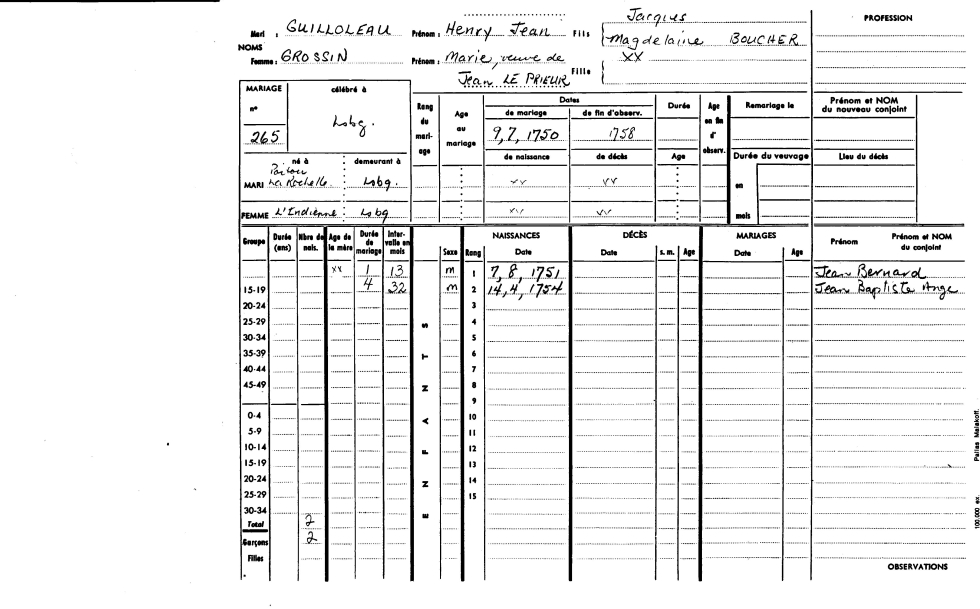 Jacques
PROFESSION
Mari : GUILLOLEAU Prénom : Henry Jean Fils Magdelaine BOUCHER
NOMS
Femme : GROSSIN Prénom : Marie, veuve de Fille XX
Jean LE PRIEUR
MARIAGE célébré à
n° 265 Lobg.
Rang du mariage
Age au mariage
Dates
de mariage de fin d'observ.
9, 7, 1750 1758
de naissance de décès
xx xx
xx xx
Durée
Age
Age en fin d'observ.
Remariage le
Durée du veuvage
en
mois
Prénom et NOM du nouveau conjoint
Lieu du décès
né à demeurant à
Poitou
MARI La Rochelle Lobg.
FEMME L'Indienne Lobg
Groupe Durée (ans) Nbre de nais. Age de la mère Durée de mariage Intervalle en mois Sexe Rang NAISSANCES Date DÉCÈS Date s. m. Age MARIAGES Date Age Prénom Prénom et NOM du conjoint
xx 1 13 m 1 7, 8, 1751 Jean Bernard
15-19 4 32 m 2 14, 4, 1754 Jean Baptiste Ange
20-24 3
25-29 4
30-34 5
35-39 6
40-44 7
45-49 8
9
0-4 10
5-9 11
10-14 12
15-19 13
20-24 14
25-29 15
30-34
Total 2
Garçons 2
Filles
ENFANTS
OBSERVATIONS
100.000 ex. Pallas Malakoff.